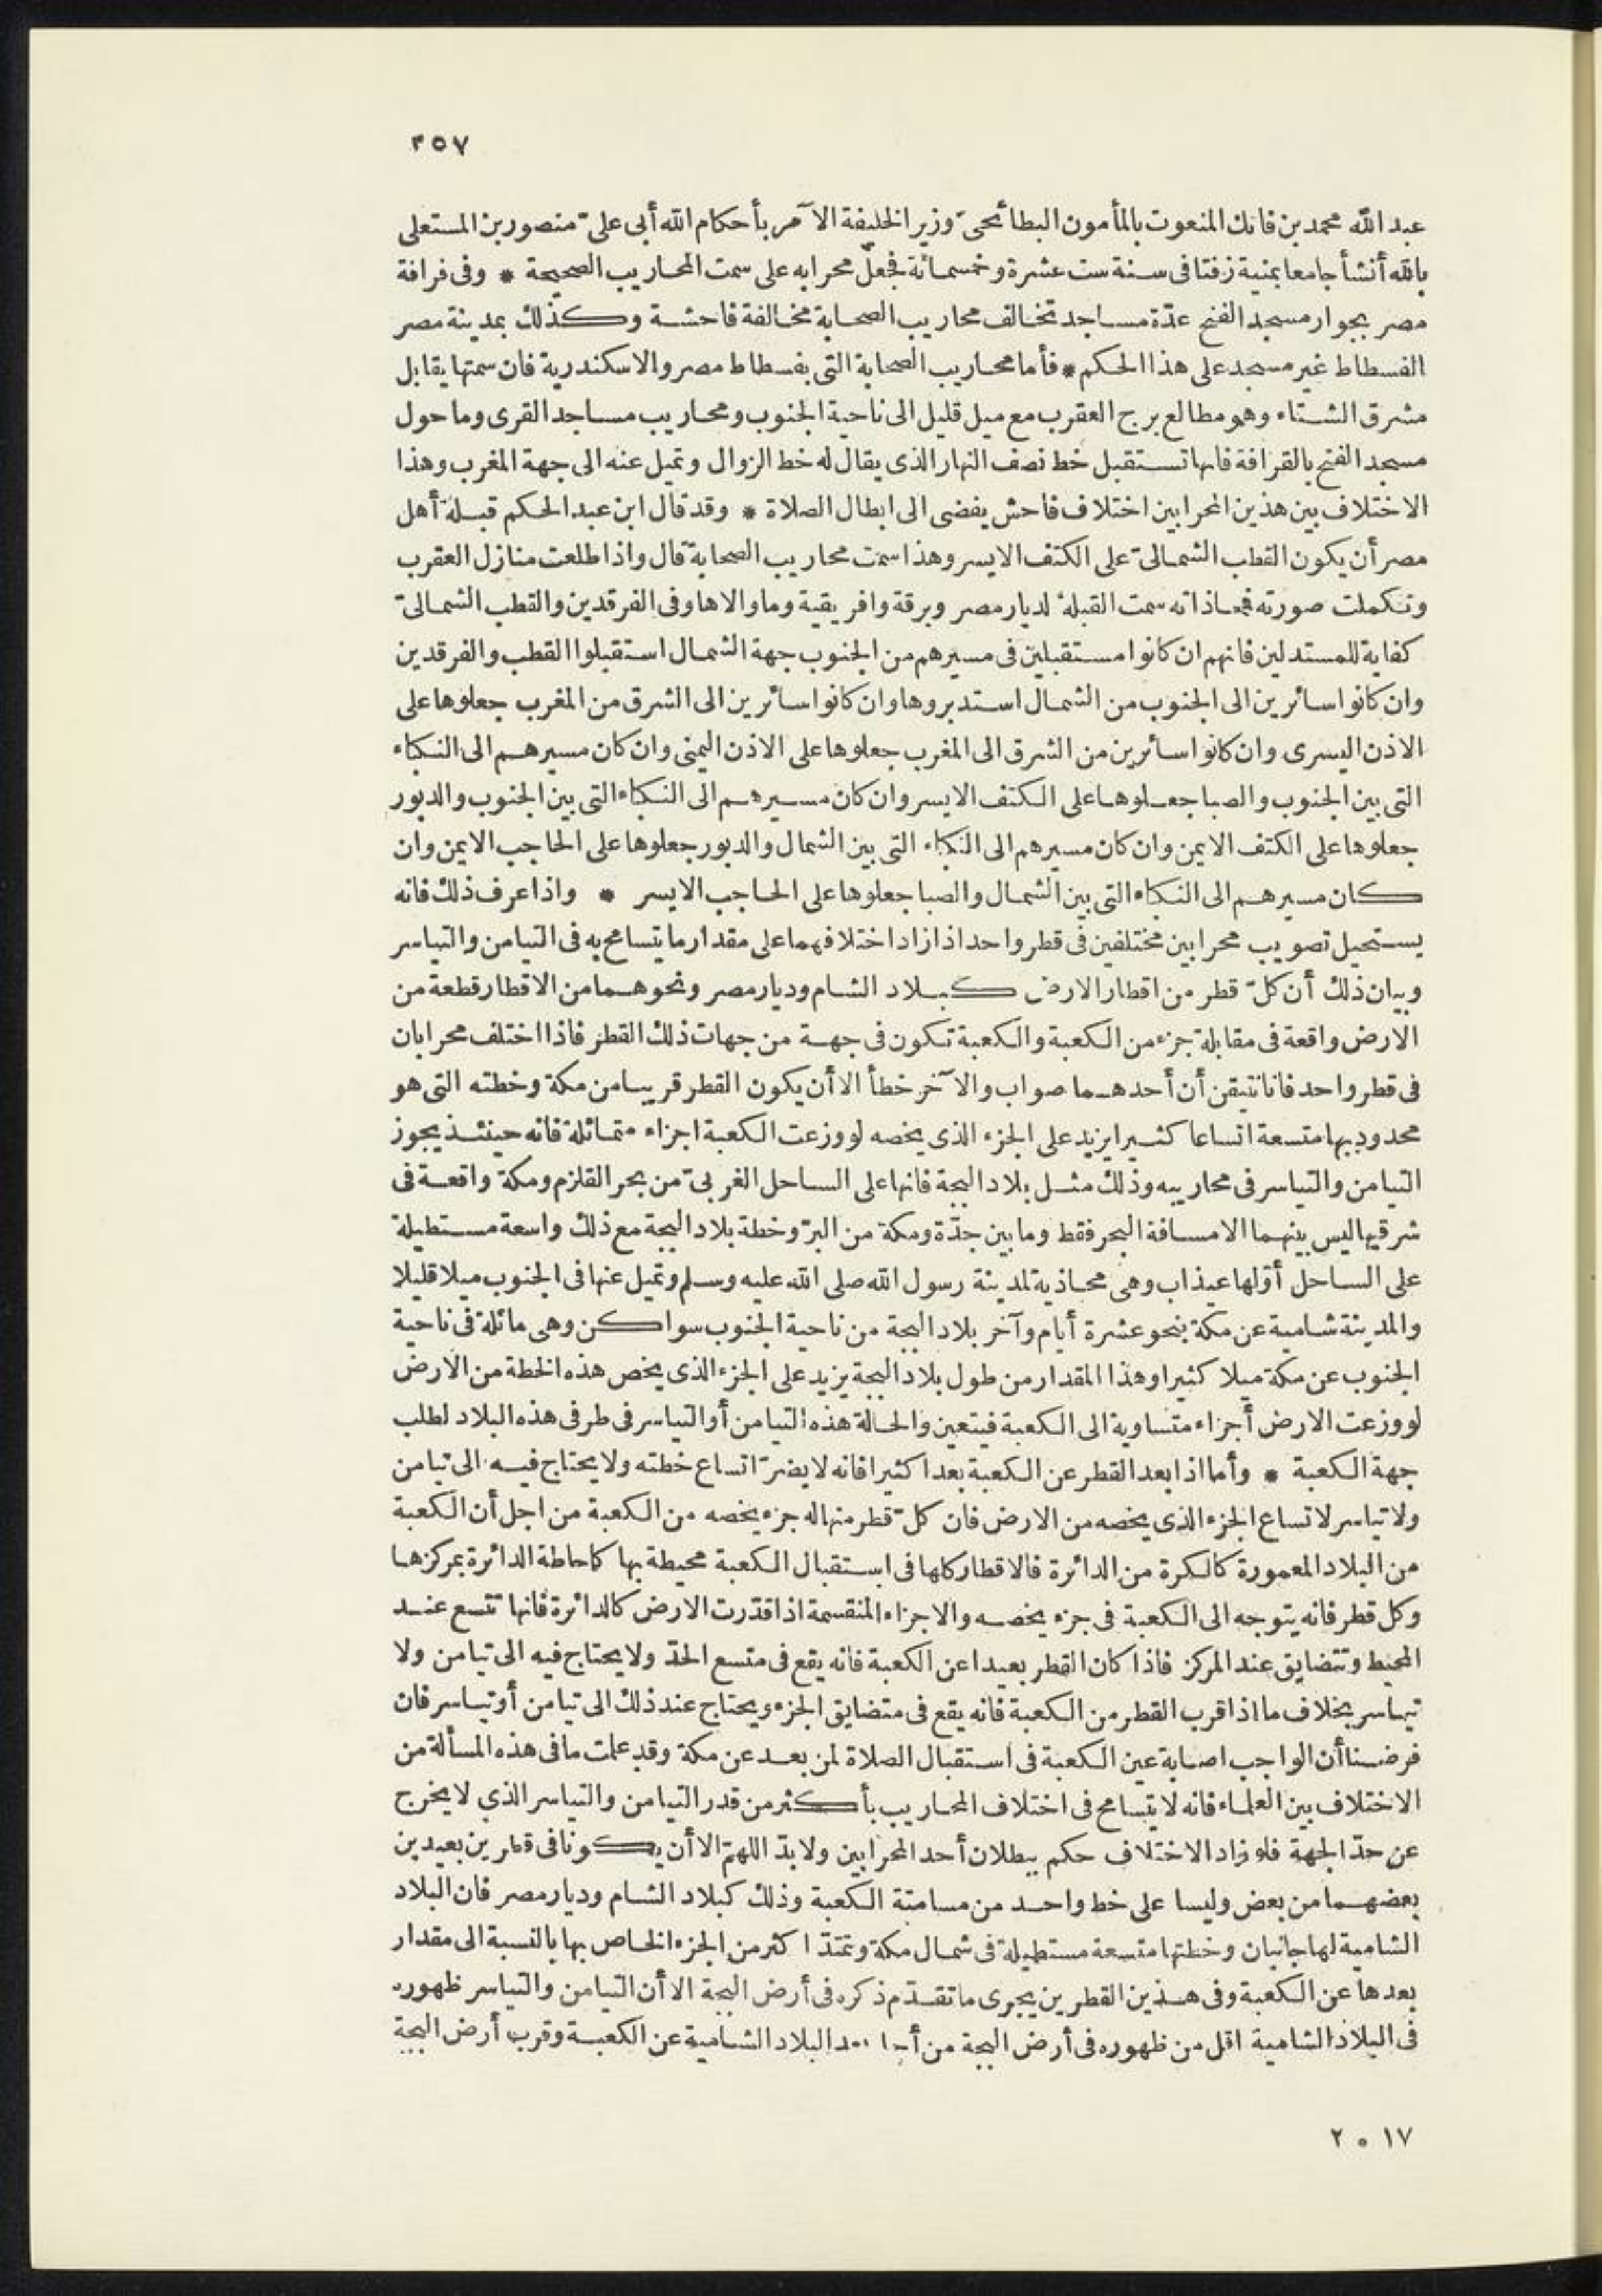 ٢٥٧
عبد الله محمد بن فاتك المنعوت بالمأمون البطائحىّ وزير الخليفة الآمر بأحكام الله أبى علىّ منصور بن المستعلى
بالله أنشأ جامعا بمنية زفتا فى سنة ست عشرة وخمسمائة فجعل محرابه على سمت المحاريب الصحيحة * وفى قرافة
مصر بجوار مسجد الفتح عدّة مساجد تخالف محاريب الصحابة مخالفة فاحشة وكذلك بمدينة مصر
الفسطاط غير مسجد على هذا الحكم * فأما محاريب الصحابة التى بفسطاط مصر والاسكندرية فان سمتها يقابل
مشرق الشتاء وهو مطالع برج العقرب مع ميل قليل الى ناحية الجنوب ومحاريب مساجد القرى وما حول
مسجد الفتح بالقرافة فانها تستقبل خط نصف النهار الذى يقال له خط الزوال وتميل عنه الى جهة المغرب وهذا
الاختلاف بين هذين المحرابين اختلاف فاحش يفضى الى ابطال الصلاة * وقد قال ابن عبد الحكم قبلة أهل
مصر أن يكون القطب الشمالىّ على الكتف الايسر وهذا سمت محاريب الصحابة قال واذا طلعت منازل العقرب
وتكملت صورته فمحاذاته سمت القبلة لديار مصر وبرقة وافريقية وما والاها وفى الفرقدين والقطب الشمالىّ
كفاية للمستدلين فانهم ان كانوا مستقبلين فى مسيرهم من الجنوب جهة الشمال استقبلوا القطب والفرقدين
وان كانوا سائرين الى الجنوب من الشمال استدبروها وان كانوا سائرين الى الشرق من المغرب جعلوها على
الاذن اليسرى وان كانوا سائرين من الشرق الى المغرب جعلوها على الاذن اليمنى وان كان مسيرهم الى النكباء
التى بين الجنوب والصبا جعلوها على الكتف الايسر وان كان مسيرهم الى النكباء التى بين الجنوب والدبور
جعلوها على الكتف الايمن وان كان مسيرهم الى النكباء التى بين الشمال والدبور جعلوها على الحاجب الايمن وان
كان مسيرهم الى النكباء التى بين الشمال والصبا جعلوها على الحاجب الايسر * واذا عرف ذلك فانه
يستحيل تصويب محرابين مختلفين فى قطر واحد اذا زاد اختلافهما على مقدار ما يتسامح به فى التيامن والتياسر
وبيان ذلك أن كلّ قطر من اقطار الارض كبلاد الشام وديار مصر ونحوهما من الاقطار قطعة من
الارض واقعة فى مقابلة جزء من الكعبة والكعبة تكون فى جهة من جهات ذلك القطر فاذا اختلف محرابان
فى قطر واحد فانا نتيقن أن أحدهما صواب والآخر خطأ الا أن يكون القطر قريبا من مكة وخطته التى هو
محدود بها متسعة اتساعا كثيرا يزيد على الجزء الذى يخصه لو وزعت الكعبة اجزاء متماثلة فانه حينئذ يجوز
التيامن والتياسر فى محاريبه وذلك مثل بلاد البجة فانها على الساحل الغربىّ من بحر القلزم ومكة واقعة فى
شرقيها ليس بينهما الا مسافة البحر فقط وما بين جدّة ومكة من البرّ وخطة بلاد البجة مع ذلك واسعة مستطيلة
على الساحل أوّلها عيذاب وهى محاذية لمدينة رسول الله صلى الله عليه وسلم وتميل عنها فى الجنوب ميلا قليلا
والمدينة شامية عن مكة بنحو عشرة أيام وآخر بلاد البجة من ناحية الجنوب سواكن وهى مائلة فى ناحية
الجنوب عن مكة ميلا كثيرا وهذا المقدار من طول بلاد البجة يزيد على الجزء الذى يخص هذه الخطة من الارض
لو وزعت الارض أجزاء متساوية الى الكعبة فيتعين والحالة هذه التيامن أو التياسر فى طرفى هذه البلاد لطلب
جهة الكعبة * وأما اذا بعد القطر عن الكعبة بعدا كثيرا فانه لا يضرّ اتساع خطته ولا يحتاج فيه الى تيامن
ولا تياسر لاتساع الجزء الذى يخصه من الارض فان كلّ قطر منها له جزء يخصه من الكعبة من اجل أن الكعبة
من البلاد المعمورة كالكرة من الدائرة فالاقطار كلها فى استقبال الكعبة محيطة بها كاحاطة الدائرة بمركزها
وكل قطر فانه يتوجه الى الكعبة فى جزء يخصه والاجزاء المنقسمة اذا قدّرت الارض كالدائرة فانها تتسع عند
المحيط وتتضايق عند المركز فاذا كان القطر بعيدا عن الكعبة فانه يقع فى متسع الحدّ ولا يحتاج فيه الى تيامن ولا
تياسر بخلاف ما اذا قرب القطر من الكعبة فانه يقع فى متضايق الجزء ويحتاج عند ذلك الى تيامن أو تياسر فان
فرضنا أن الواجب اصابة عين الكعبة فى استقبال الصلاة لمن بعد عن مكة وقد علمت ما فى هذه المسألة من
الاختلاف بين العلماء فانه لا يتسامح فى اختلاف المحاريب بأكثر من قدر التيامن والتياسر الذي لا يخرج
عن حدّ الجهة فلو زاد الاختلاف حكم ببطلان أحد المحرابين ولا بدّ اللهمّ الا أن يكونا فى قطرين بعيدين
بعضهما من بعض وليسا على خط واحد من مسامتة الكعبة وذلك كبلاد الشام وديار مصر فان البلاد
الشامية لها جانبان وخطتها متسعة مستطيلة فى شمال مكة وتمتدّ اكثر من الجزء الخاص بها بالنسبة الى مقدار
بعدها عن الكعبة وفى هذين القطرين يجرى ما تقدّم ذكره فى أرض البجة الا أن التيامن والتياسر ظهوره
فى البلاد الشامية اقل من ظهوره فى أرض البجة من أجل بعد البلاد الشامية عن الكعبة وقرب أرض البجة
١٧ ٥ ٢